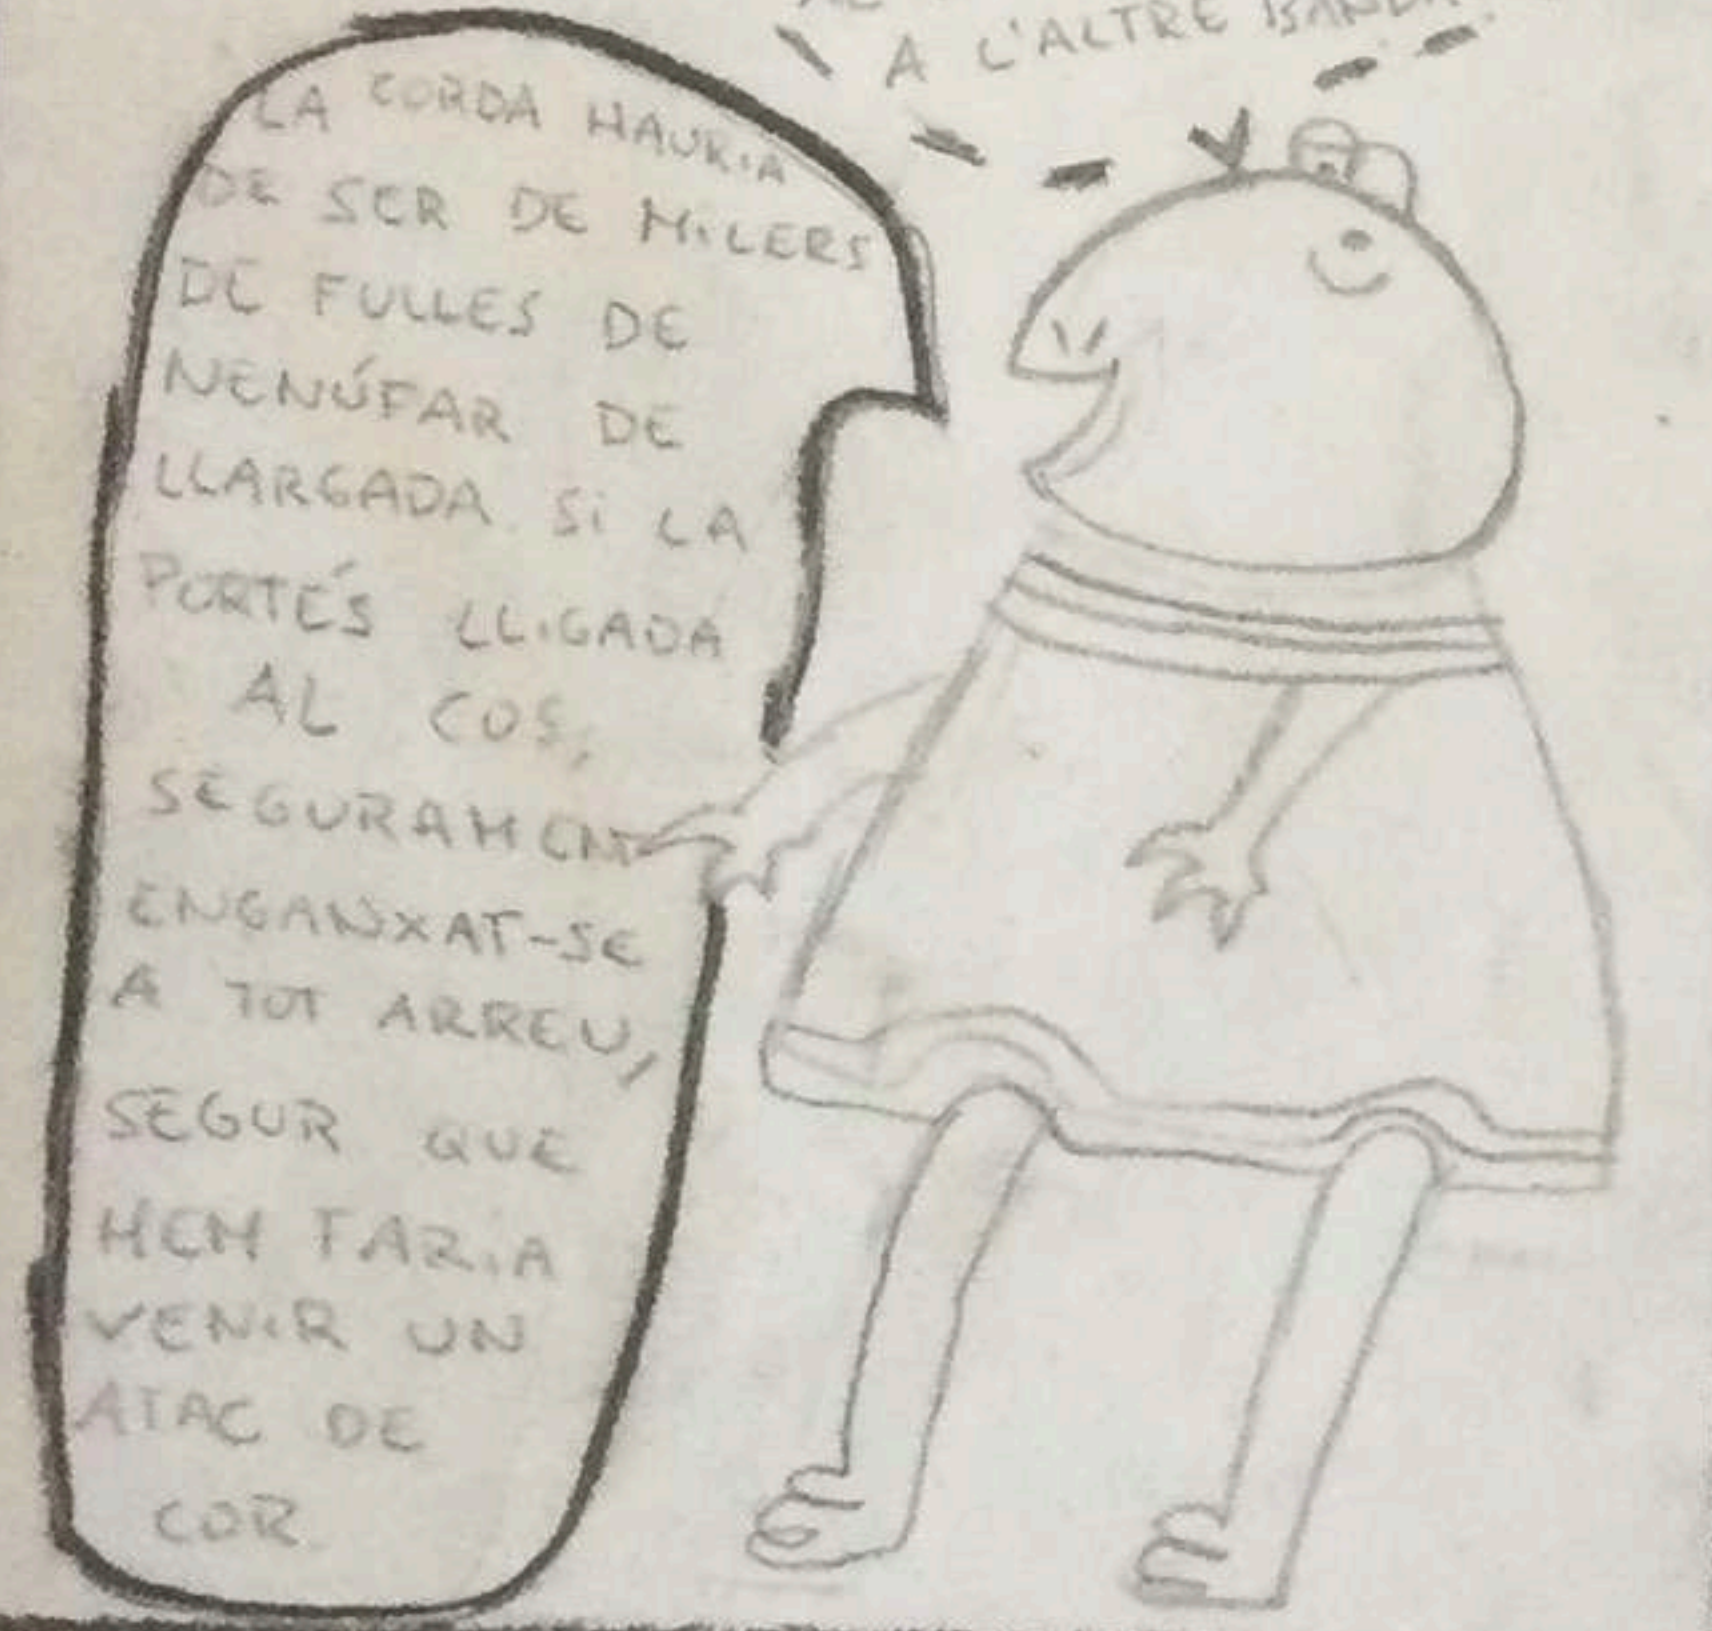 A L'ALTRE BANDA
LA CORDA HAURIA
DE SER DE MILERS
DE FULLES DE
NENÚFAR DE
LLARGADA. SI LA
PORTÉS LLIGADA
AL COS,
SEGURAMENT
ENGANXAT-SE
A TOT ARREU,
SEGUR QUE
HEM FARIA
VENIR UN
ATAC DE
COR